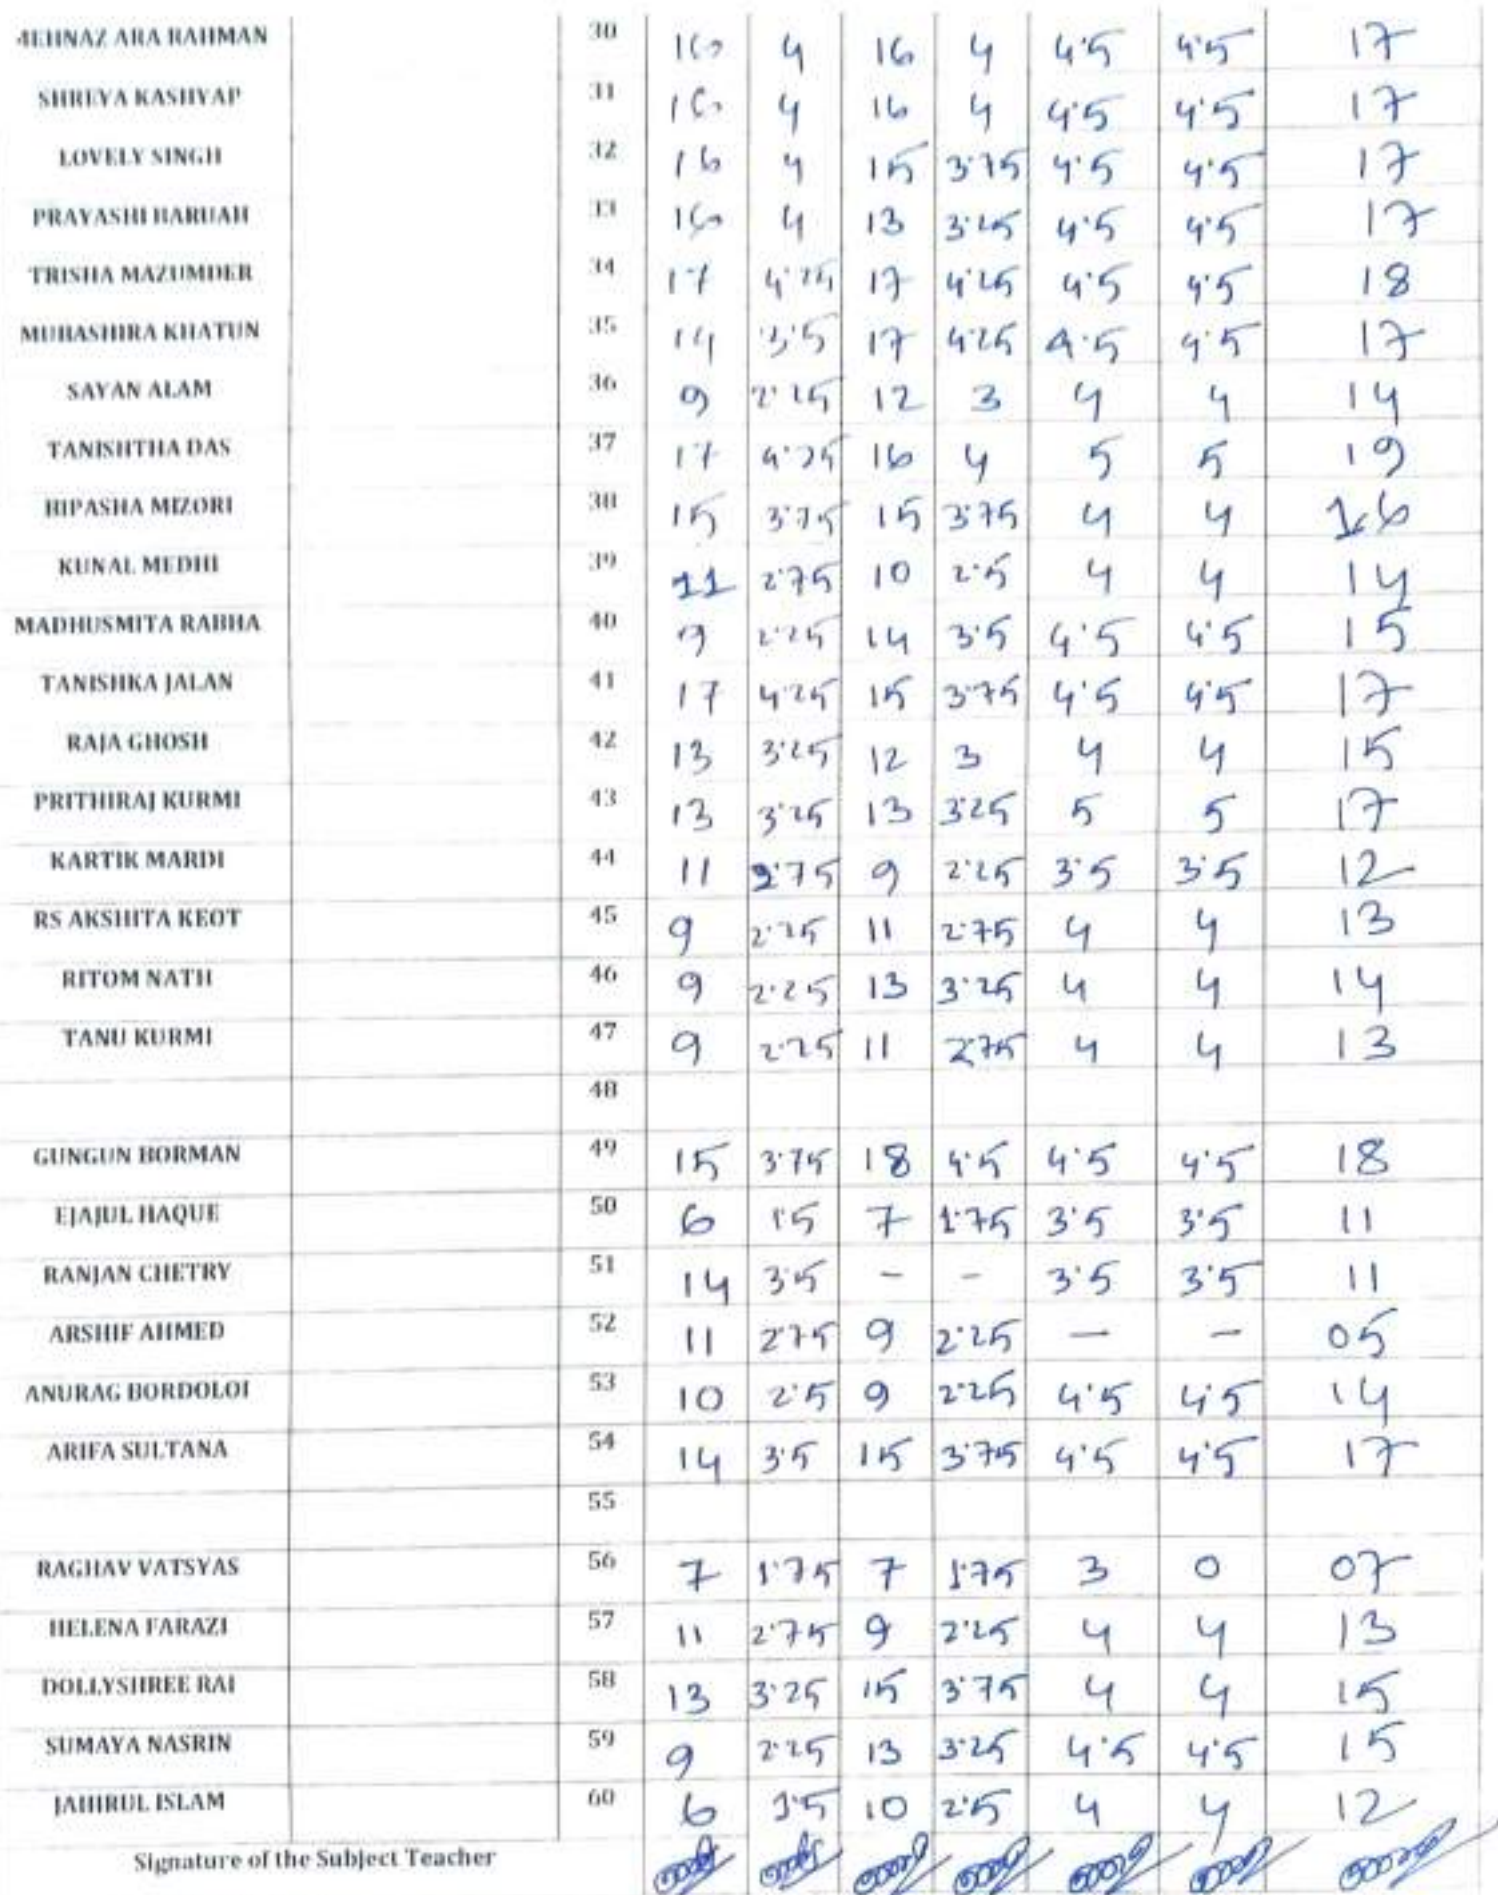 MEHNAZ ARA RAHMAN 30 16 4 16 4 4.5 4.5 17
SHREYA KASHYAP 31 16 4 16 4 4.5 4.5 17
LOVELY SINGH 32 16 4 15 3.75 4.5 4.5 17
PRAYASHI BARUAH 33 16 4 13 3.25 4.5 4.5 17
TRISHA MAZUMDER 34 17 4.25 17 4.25 4.5 4.5 18
MUBASHIRA KHATUN 35 14 3.5 17 4.25 4.5 4.5 17
SAYAN ALAM 36 9 2.25 12 3 4 4 14
TANISHTHA DAS 37 17 4.25 16 4 5 5 19
BIPASHA MIZORI 38 15 3.75 15 3.75 4 4 16
KUNAL MEDHI 39 11 2.75 10 2.5 4 4 14
MADHUSMITA RABHA 40 9 2.25 14 3.5 4.5 4.5 15
TANISHKA JALAN 41 17 4.25 15 3.75 4.5 4.5 17
RAJA GHOSH 42 13 3.25 12 3 4 4 15
PRITHIRAJ KURMI 43 13 3.25 13 3.25 5 5 17
KARTIK MARDI 44 11 2.75 9 2.25 3.5 3.5 12
RS AKSHITA KEOT 45 9 2.25 11 2.75 4 4 13
RITOM NATH 46 9 2.25 13 3.25 4 4 14
TANU KURMI 47 9 2.25 11 2.75 4 4 13
48
GUNGUN BORMAN 49 15 3.75 18 4.5 4.5 4.5 18
EJAJUL HAQUE 50 6 1.5 7 1.75 3.5 3.5 11
RANJAN CHETRY 51 14 3.5 - - 3.5 3.5 11
ARSHIF AHMED 52 11 2.75 9 2.25 - - 05
ANURAG BORDOLOI 53 10 2.5 9 2.25 4.5 4.5 14
ARIFA SULTANA 54 14 3.5 15 3.75 4.5 4.5 17
55
RAGHAV VATSYAS 56 7 1.75 7 1.75 3 0 07
HELENA FARAZI 57 11 2.75 9 2.25 4 4 13
DOLLYSHREE RAI 58 13 3.25 15 3.75 4 4 15
SUMAYA NASRIN 59 9 2.25 13 3.25 4.5 4.5 15
JAHIRUL ISLAM 60 6 1.5 10 2.5 4 4 12
Signature of the Subject Teacher